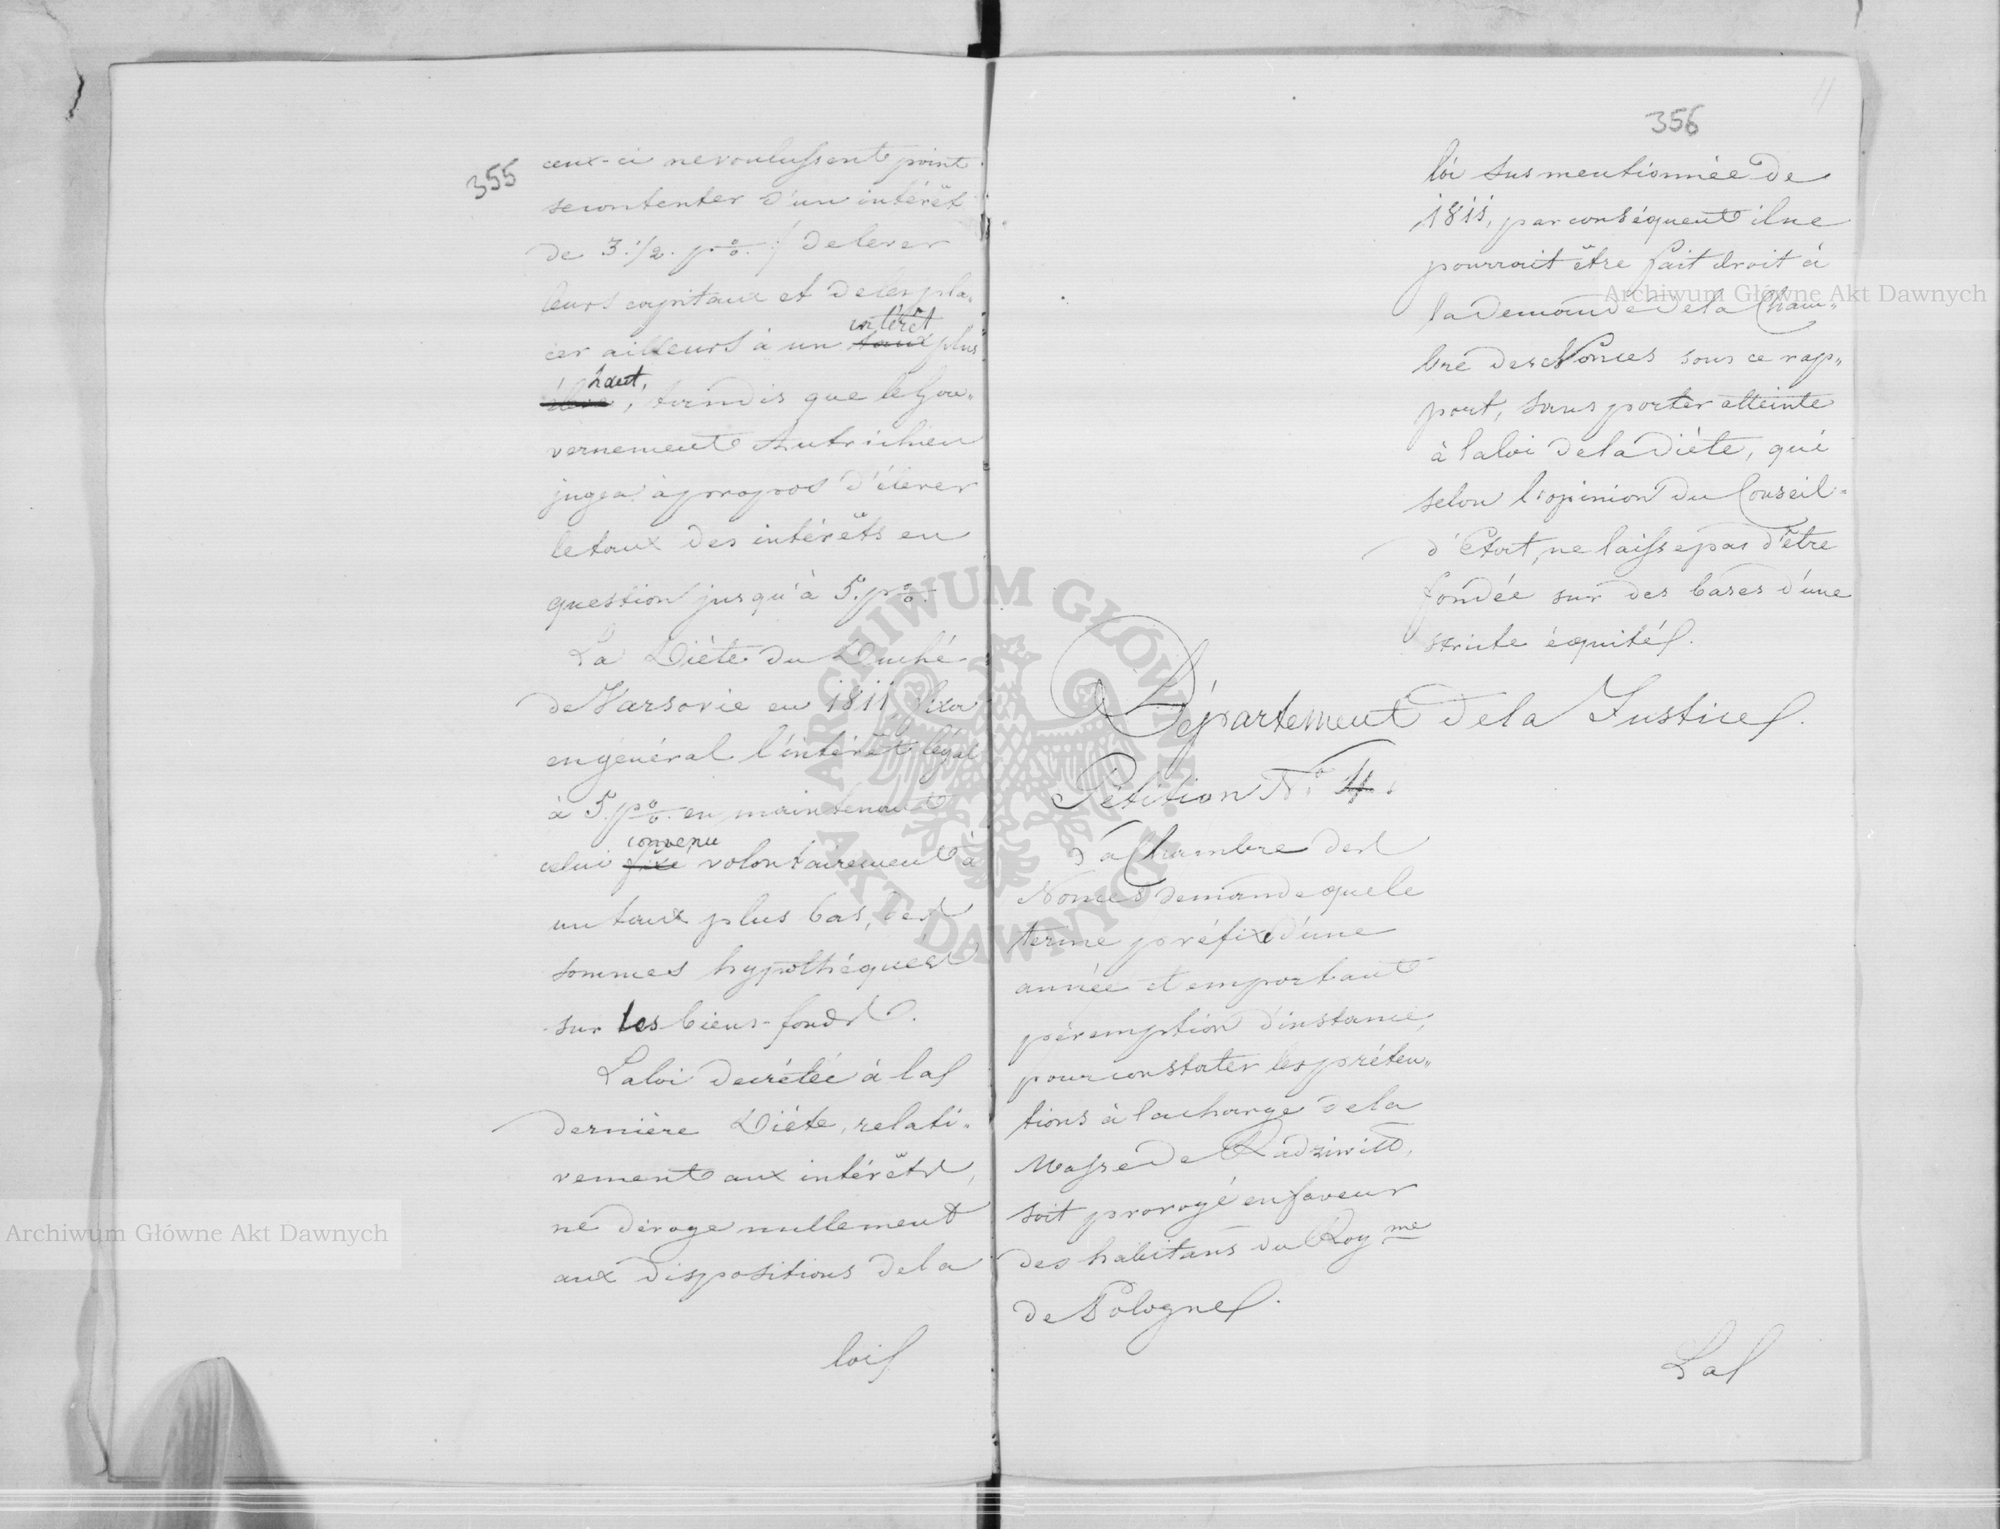 355
ceux-ci ne voulussent point
se contenter d'un intérêt
de 3.1/2. p.% / de lever
leurs capitaux et de les pla-
cer ailleurs à un taux intérêt plus
élevé haut, tandis que le Gou-
vernement Autrichien
jugea à propos d'élever
le taux des intérêts en
question jusqu'à 5. p%.
La Diète du Duché
de Varsovie en 1811 fixa
en général l'intérêt légal
à 5. p% en maintenant
celui fixé convenu volontairement à
un taux plus bas, des
sommes hypothéquées
sur les biens-fonds.
La loi decrétée à la
dernière Diéte, relati-
vement aux intérêts,
ne déroge nullement
aux dispositions de la
loi
356
11
loi susmentionnée de
1811, par conséquent il ne
pourrait être fait droit à
la demande de la Cham-
bre des Nonces sous ce rap-
port, sans porter atteinte
à la loi de la Diéte, qui
selon l'opinion du Conseil-
d'Etat, ne laisse pas d'être
fondée sur des bases d'une
stricte équité.
Département de la Justice.
Pétition No. 4.
La Chambre des
Nonces demande que le
terme préfix d'une
année et emportant
péremption d'instance,
pour constater les préten-
tions à la charge de la
Masse de Radziwill,
soit prorogé en faveur
des habitans du Royme
de Pologne.
La
Archiwum Główne Akt Dawnych
Archiwum Główne Akt Dawnych
ARCHIWUM GŁÓWNE AKT DAWNYCH